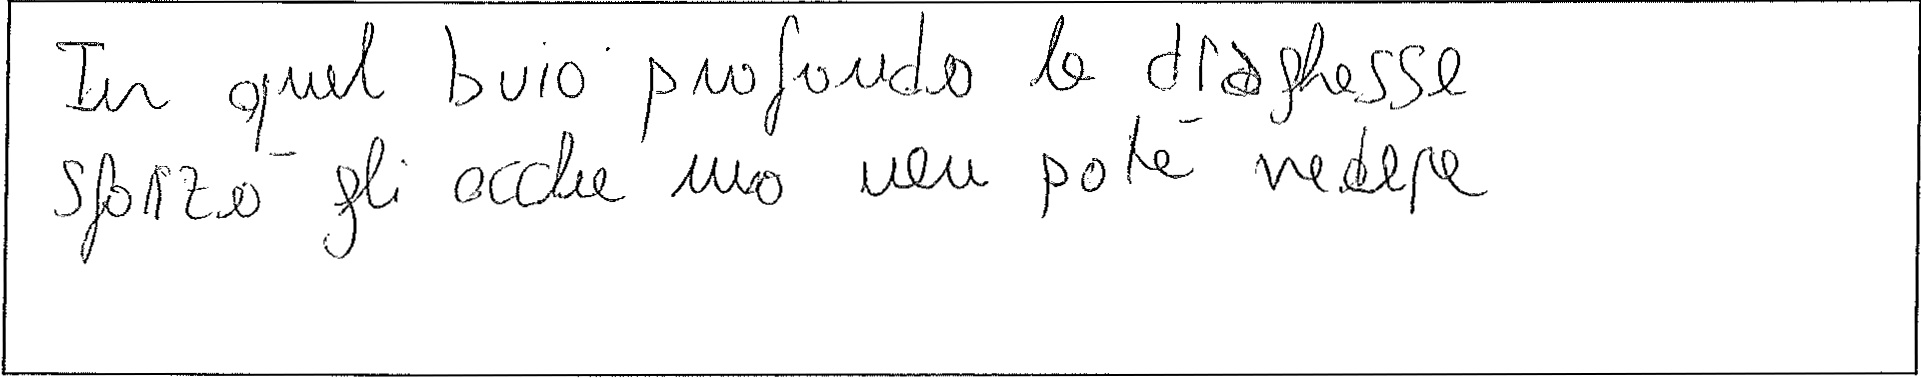 In quel buio profondo la draghessa
sforzò gli occhi ma non poté vedere